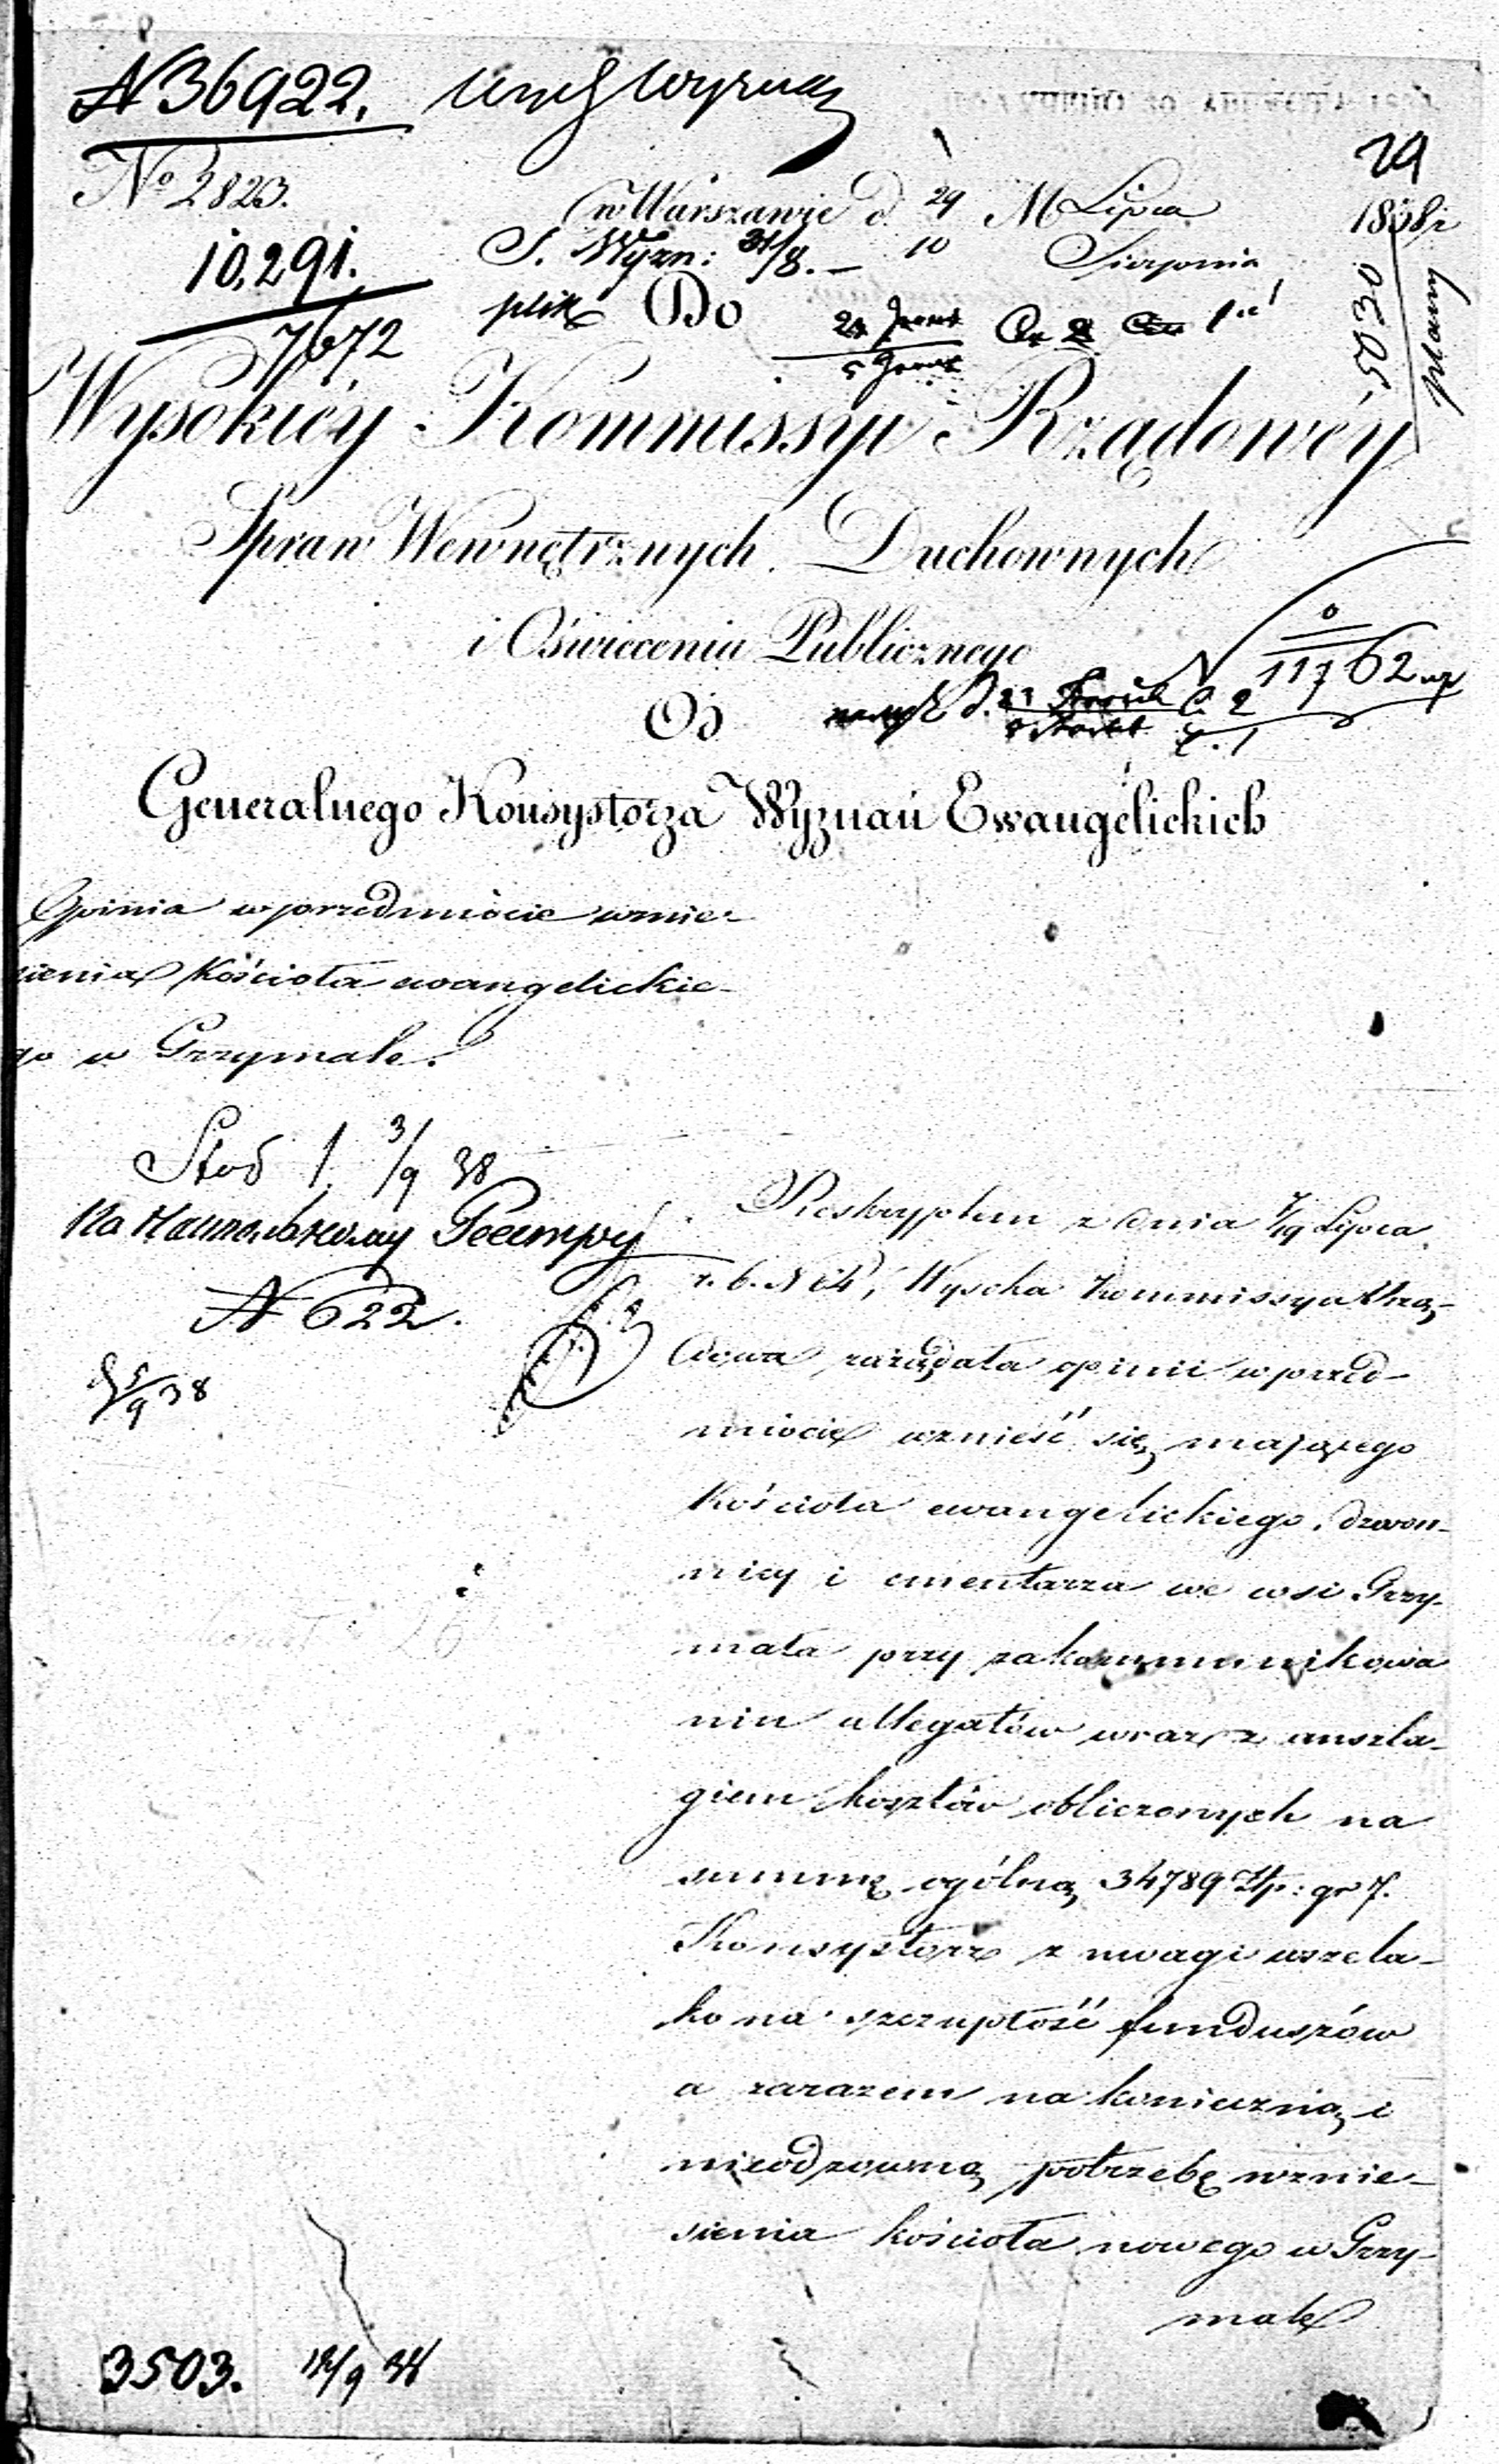 N 36922.
29
No 2823.
w Warszawie d. 29 M Lipca 1838 r
10 Sierpnia
10,291.
S. Wyzn: 31/8. –
7672
plik Do
5030
plany
Wysokiéy Kommissyi Rządowéy
Spraw Wewnętrznych Duchownych
i Oświecenia Publicznego
11762
Od
Generalnego Konsystorza Wyznań Ewangelickich
Opinia w przedmiocie wznie-
sienia Kościoła ewangelickie-
go w Grzymale.
3/9 38
N 622.
5/9 38
Reskryptem z dnia 7/19 Lipca
r. b. N 64, Wysoka Kommissya Rzą-
dowa zażądała opinii w przed-
miocie wznieść się mającego
Kościoła ewangelickiego, dzwon-
nicy i cmentarza we wsi Grzy-
mała przy zakommunikowa
niu allegatów wraz z anszla-
giem kosztów obliczonych na
summę ogólną 34789 Złp: gr 7.
Konsystorz z uwagi wszela-
ko na szczupłość funduszów
a zarazem na konieczną i
nieodzowną potrzebę wznie-
sienia kościoła nowego w Grzy-
male
3503. 12/9 38